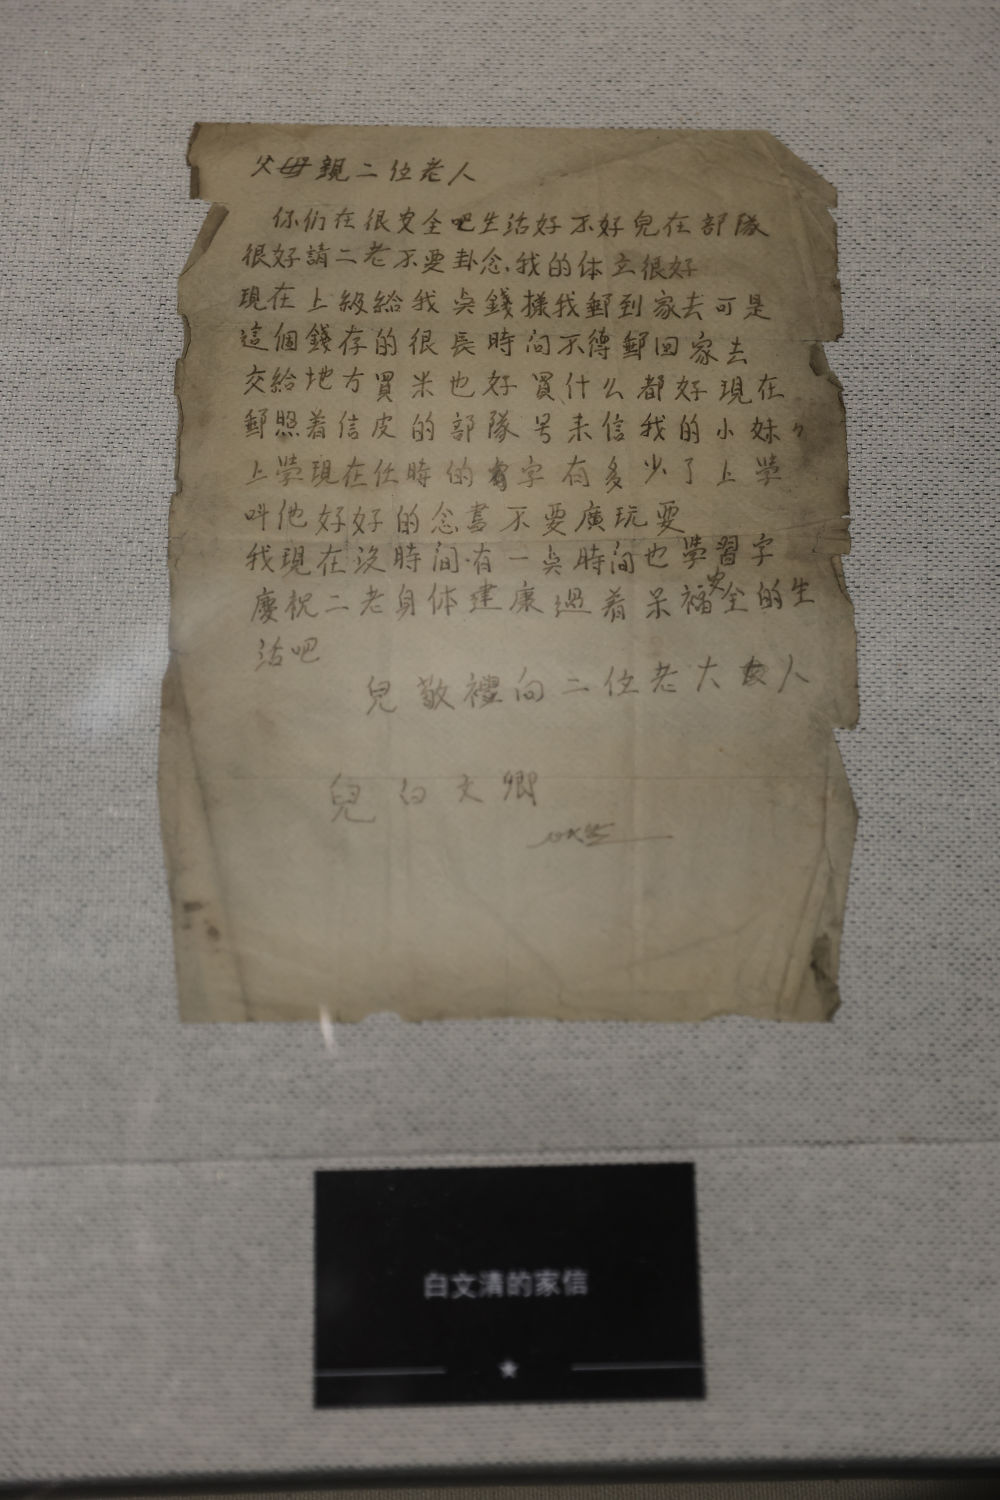 父母親二位老人
你们在很安全吧生活好不好兒在部隊
很好請二老不要卦念,我的体立很好
現在上級給我吳錢樣我郵到家去可是
這個錢存的很長時间不得郵回家去
交給地方買米也好買什么都好現在
郵照着信皮的部隊号来信我的小妹々
上學現在任時的字有多少了上學
叫他好好的念書不要廣玩耍
我現在沒時間有一吳時間也學習字
慶祝二老身体建康過着呆福安全的生
活吧
兒敬禮向二位老大人
兒白文卿
白文清的家信